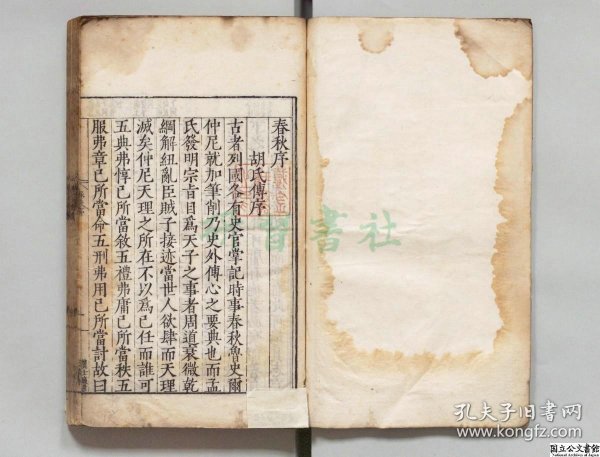 春秋序
胡氏傳序
古者列國各有史官掌記時事春秋魯史爾
仲尼就加筆削乃史外傳心之要典也而孟
氏發明宗旨目爲天子之事者周道衰微乾
綱解紐亂臣賊子接迹當世人欲肆而天理
滅矣仲尼天理之所在不以爲己任而誰可
五典弗惇己所當敘五禮弗庸己所當秩五
服弗章己所當命五刑弗用己所當討故曰
書社
孔夫子旧書网
www.kongfz.com
国立公文書館
National Archives of Japan